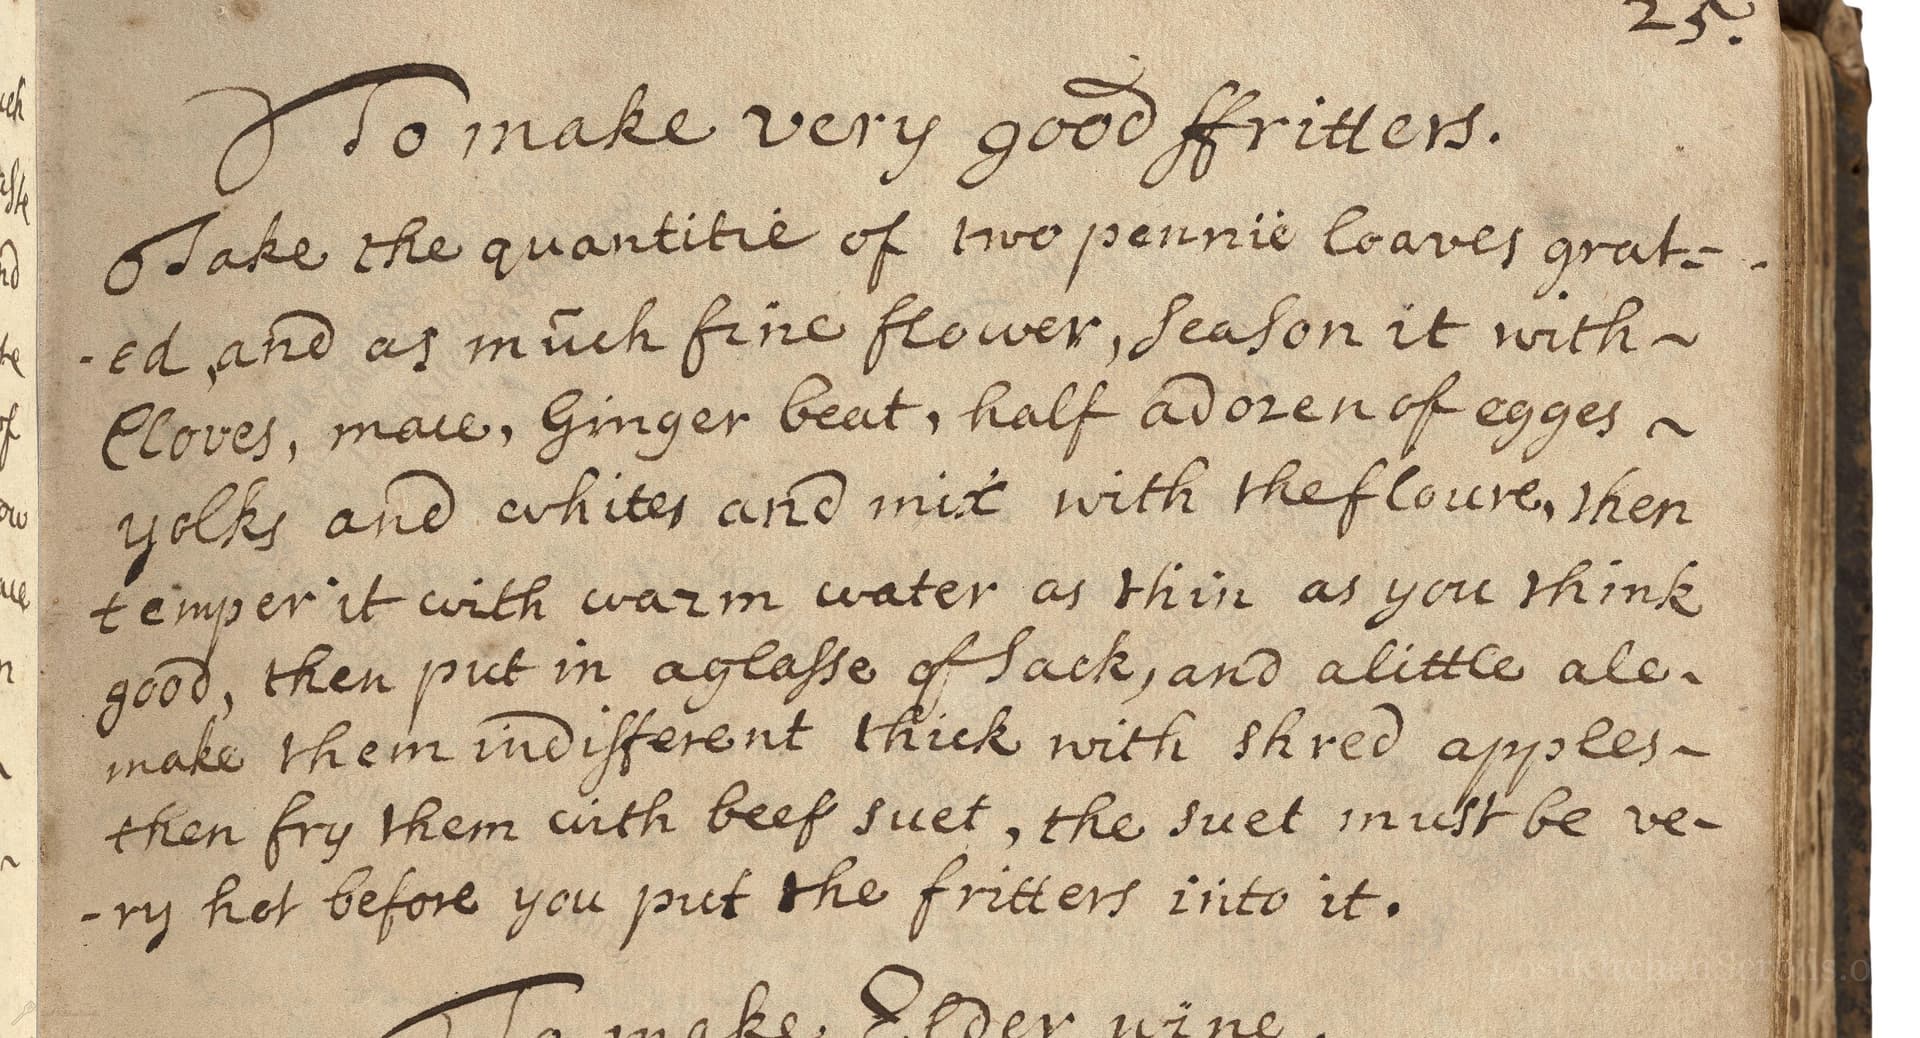 25.
To make very good ffritters.
Take the quantitie of two pennie loaves grat=
-ed, and as much fine flower, season it with~
Cloves, mace, Ginger beat, half a dozen of egges ~
yolks and whites and mix with the floure, then
temper it with warm water as thin as you think
good, then put in a glasse of Sack, and a little ale-
make them indifferent thick with shred apples~
then fry them with beef suet, the suet must be ve-
-ry hot before you put the fritters into it.
To make Elder wine.
LostKitchenScrolls.o